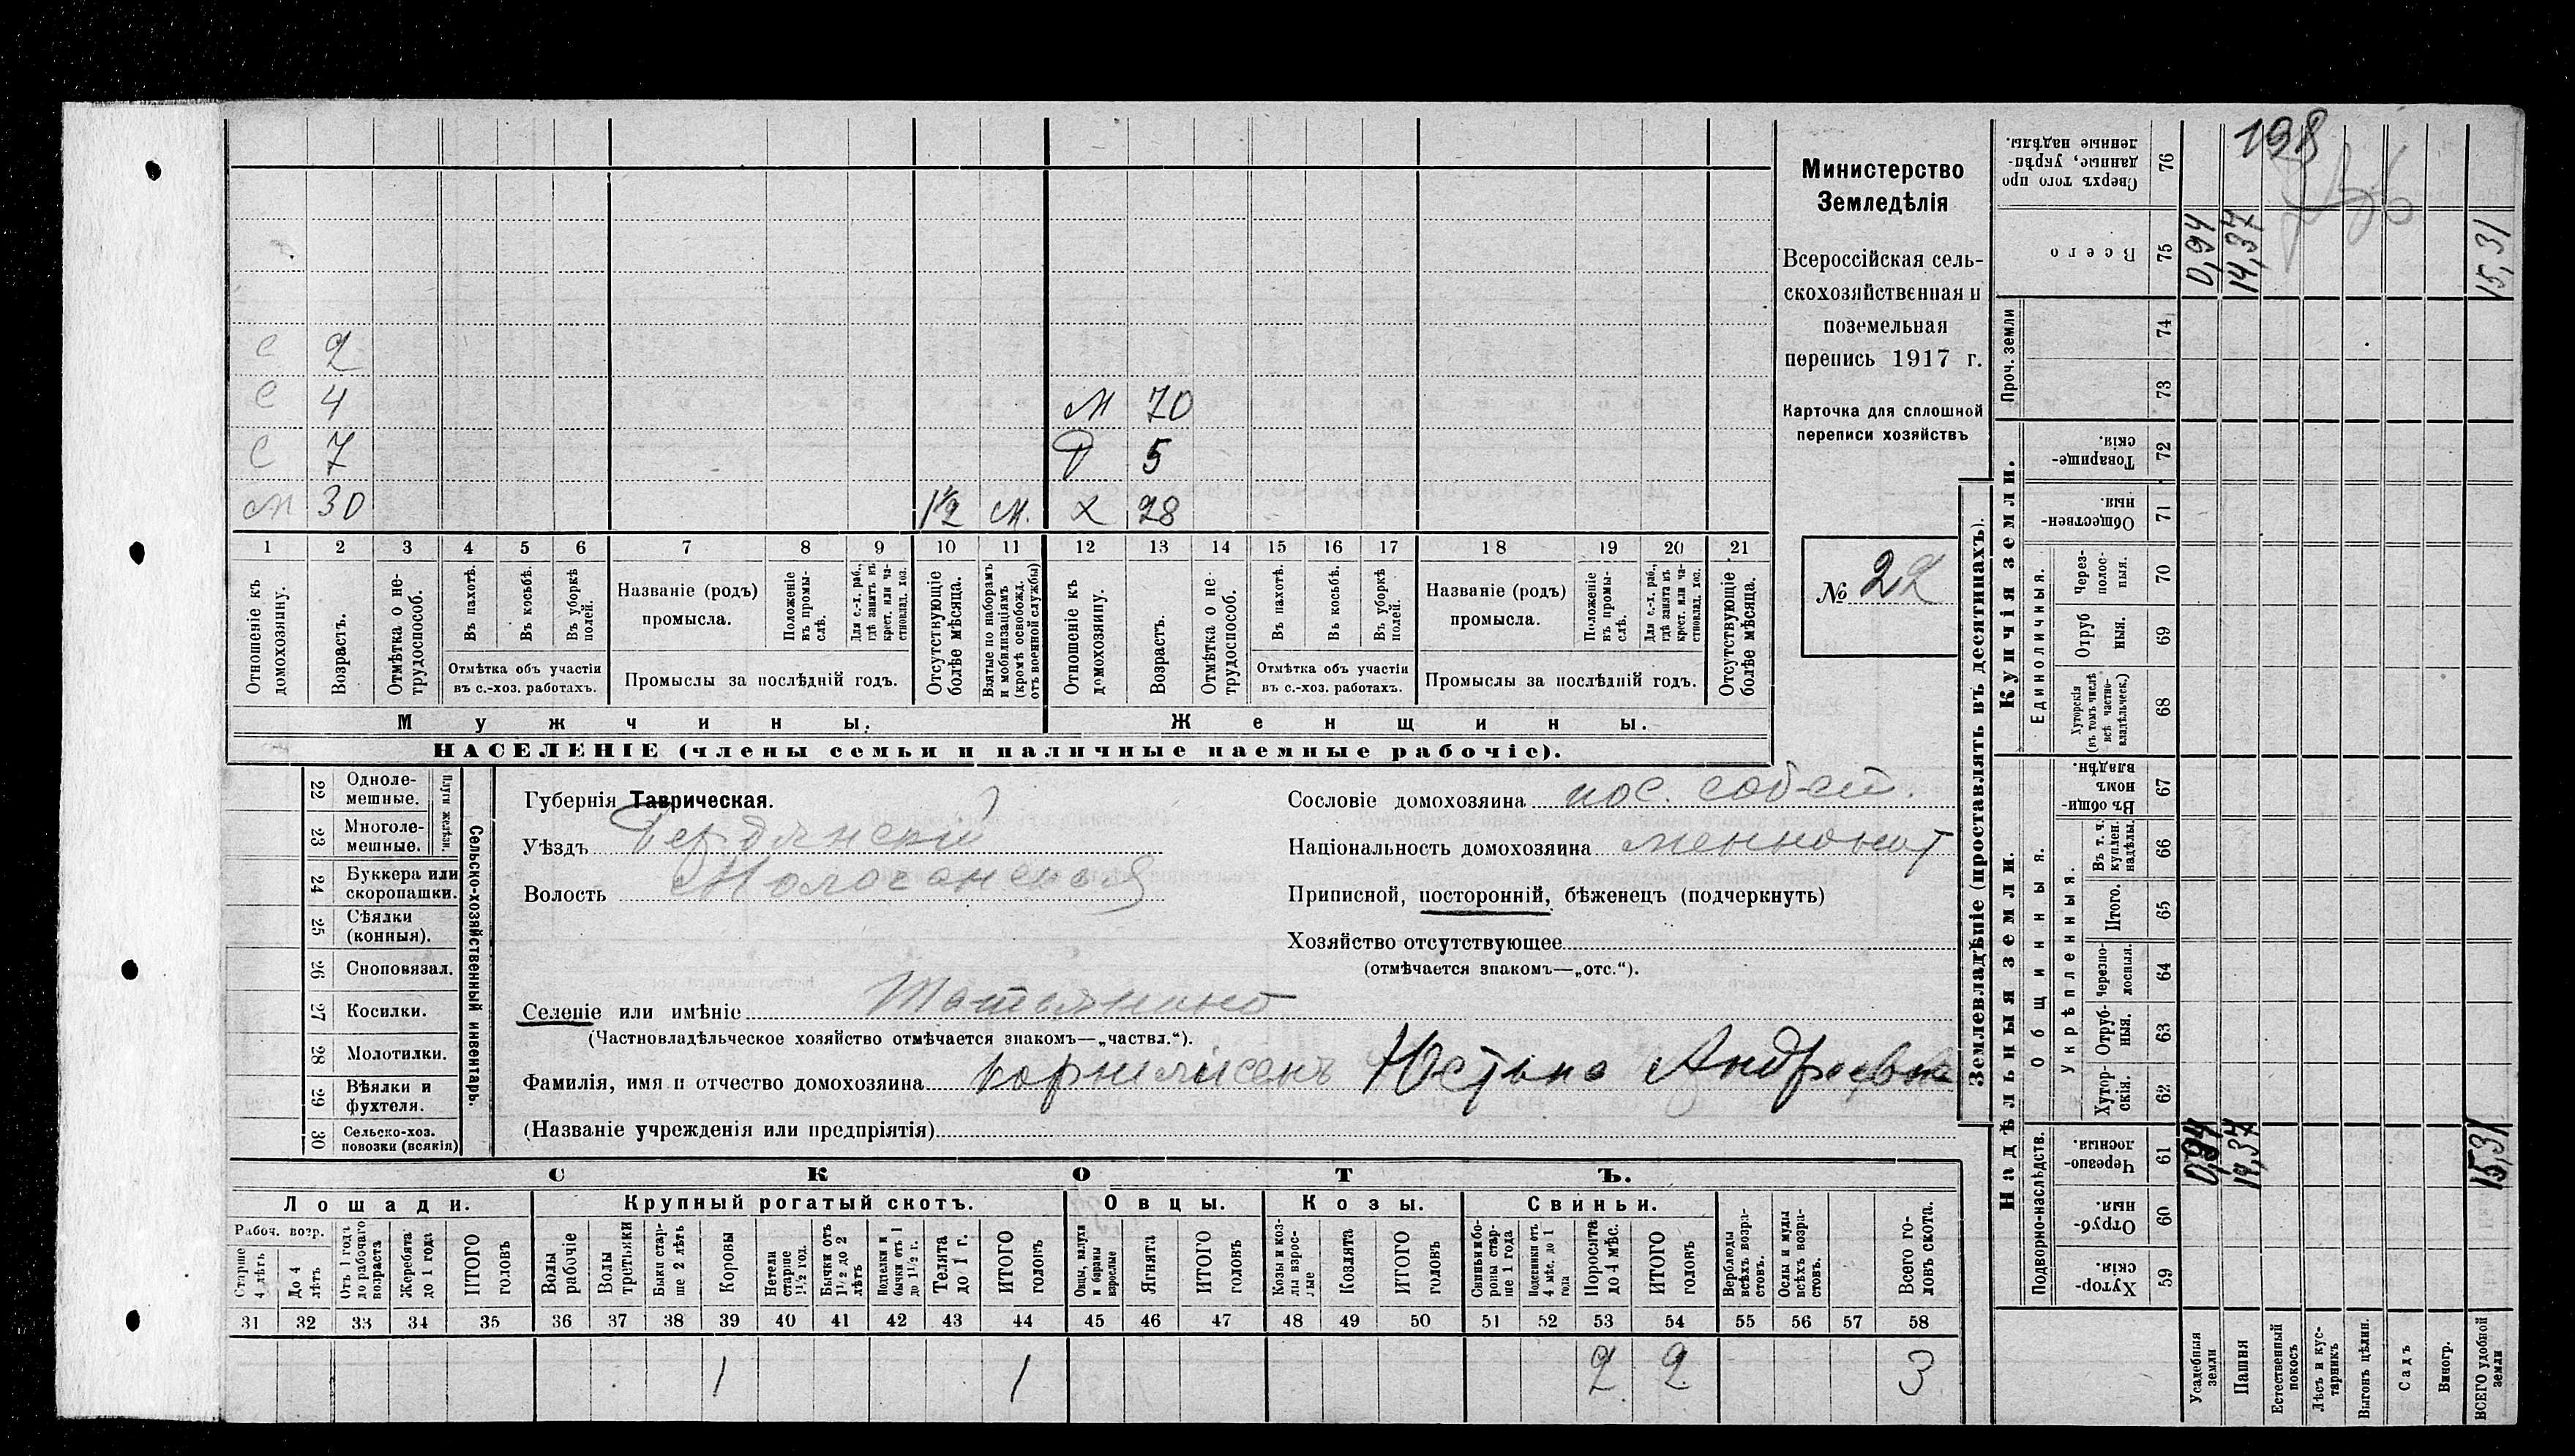 Министерство
Земледѣлія
Всероссійская сель-
скохозяйственная и
поземельная
перепись 1917 г.
Карточка для сплошной
переписи хозяйствъ
№ 22
с 2
с 4 м 70
с 7 д 5
м 30 1½ м. х 28
1 2 3 4 5 6 7 8 9 10 11 12 13 14 15 16 17 18 19 20 21
Отношеніе къ домохозяину.
Возрастъ.
Отмѣтка о не-трудоспособ.
Въ пахотѣ.
Въ косьбѣ.
Въ уборкѣ полей.
Отмѣтка объ участіи
въ с.-хоз. работахъ.
Названіе (родъ)
промысла.
Положеніе въ промы-слѣ.
Для с.-х. раб., гдѣ занятъ въ крест. или ча-стновлад. хоз.
Промыслы за послѣдній годъ.
Отсутствующіе болѣе мѣсяца.
Взятые по наборамъ и мобилизаціямъ (кромѣ освобожд. отъ военной службы)
Отношеніе къ домохозяину.
Возрастъ.
Отмѣтка о не-трудоспособ.
Въ пахотѣ.
Въ косьбѣ.
Въ уборкѣ полей.
Отмѣтка объ участіи
въ с.-хоз. работахъ.
Названіе (родъ)
промысла.
Положеніе въ промы-слѣ.
Для с.-х. раб., гдѣ занята въ крест. или ча-стновлад. хоз.
Промыслы за послѣдній годъ.
Отсутствующіе болѣе мѣсяца.
Мужчины. Женщины.
НАСЕЛЕНІЕ (члены семьи и наличные наемные рабочіе).
Сельско-хозяйственный инвентарь.
Плуги желѣзн.
22 Одноле-мешные.
23 Многоле-мешные.
24 Буккера или скоропашки.
25 Сѣялки (конныя).
26 Сноповязал.
27 Косилки.
28 Молотилки.
29 Вѣялки и фухтеля.
30 Сельско-хоз. повозки (всякія)
Губернія Таврическая.
Уѣздъ Бердянскій
Волость Молочанская
Сословіе домохозяина пос. соб-ст.
Національность домохозяина меннонит
Приписной, посторонній, бѣженецъ (подчеркнуть)
Хозяйство отсутствующее
(отмѣчается знакомъ—„отс.“).
Селеніе или имѣніе
(Частновладѣльческое хозяйство отмѣчается знакомъ—„частвл.“).
Фамилія, имя и отчество домохозяина Корнелисенъ Юстына Андреевна
(Названіе учрежденія или предпріятія)
СКОТЪ.
Лошади. Крупный рогатый скотъ. Овцы. Козы. Свиньи.
Рабоч. возр.
Старше 4 лѣтъ
До 4 лѣтъ
Отъ 1 года до рабочаго возраста
Жеребята до 1 года
ИТОГО головъ
Волы рабочіе
Волы третьяки
Быки стар-ше 2 лѣтъ
Коровы
Нетели старше 1½ год.
Бычки отъ 1½ до 2 лѣтъ
Подтелки и бычки отъ 1 до 1½ г.
Телята до 1 г.
ИТОГО головъ
Овцы, валухи и бараны взрослые
Ягнята
ИТОГО головъ
Козы и коз-лы взрос-лые
Козлята
ИТОГО головъ
Свиньи и бо-ровы стар-ше 1 года
Подсвинки отъ 4 мѣс. до 1 года
Поросята до 4 мѣс.
ИТОГО головъ
Верблюды всѣхъ возра-стовъ.
Ослы и мулы всѣхъ возра-стовъ.
Всего го-ловъ скота.
31 32 33 34 35 36 37 38 39 40 41 42 43 44 45 46 47 48 49 50 51 52 53 54 55 56 57 58
1 1 2 2 3
Землевладѣніе (проставлять въ десятинахъ).
Надѣльныя земли. Купчія земли.
Проч. земли
Подворно-наслѣдств.
Общинныя.
Укрѣпленныя.
Единоличныя.
Сверхъ того про данные, укрѣп-ленные надѣлы. 76
Всего 75
74
73
Товарище-скія. 72
Обществен-ныя 71
Через-полос-ныя. 70
Отруб ныя. 69
Хуторскія (въ томъ числѣ всѣ частно-владѣльческ.) 68
Въ общи-номъ владѣн. 67
Въ т. ч. куплен. надѣлы. 66
Итого. 65
Черезпо-лосныя. 64
Отруб-ныя. 63
Хутор-скія. 62
Черезпо-лосныя. 61
Отруб-ныя. 60
Хутор-скія. 59
198
0,94 14,37 15,31
0,94 14,37 15,31
Усадебныя земли
Пашня
Естественный покосъ
Лѣсъ и кус-тарникъ
Выгонъ цѣлин.
Садъ
Виногр.
ВСЕГО удобной земли